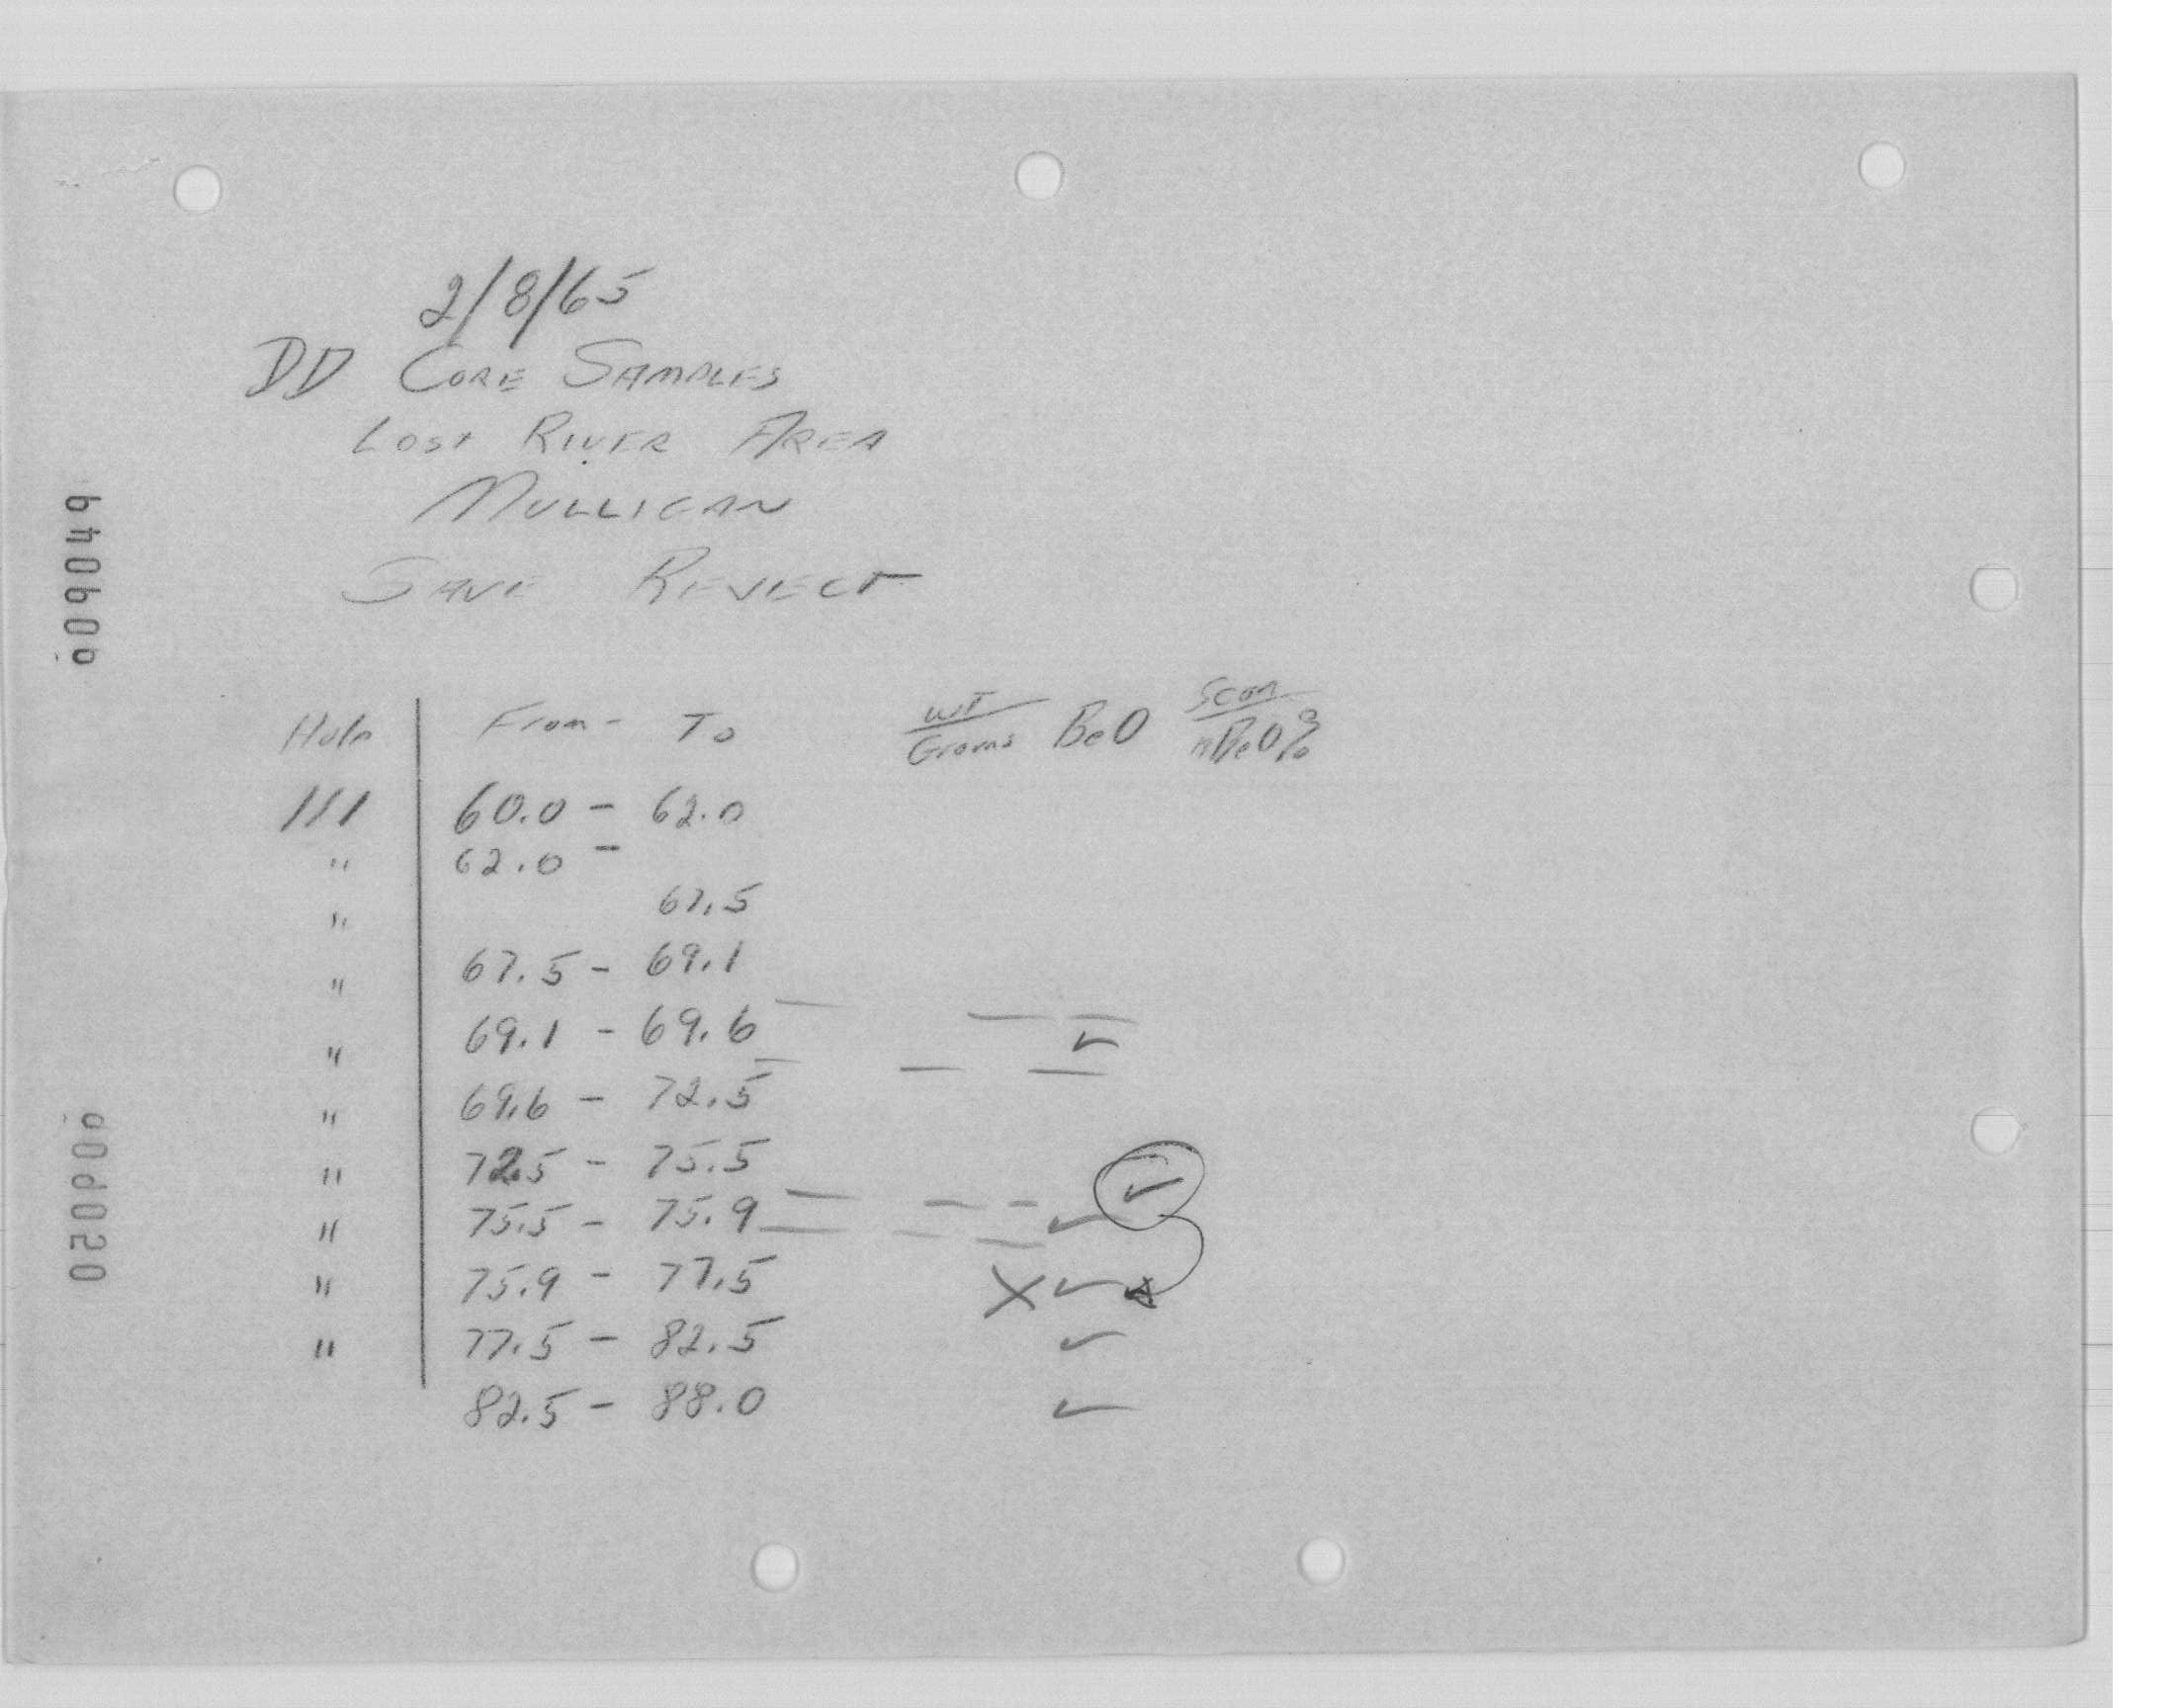 2/8/65
DD CORE SAMPLES
LOST RIVER AREA
MULLIGAN
SAVE REJECT
Hole From - To WT Grams BeO Scan BeO%
111 60.0 - 62.0
" 62.0 -
" 67.5
" 67.5 - 69.1
" 69.1 - 69.6 ✓
" 69.6 - 72.5
" 72.5 - 75.5 ✓
" 75.5 - 75.9 ✓
" 75.9 - 77.5 X ✓
" 77.5 - 82.5 ✓
82.5 - 88.0 ✓